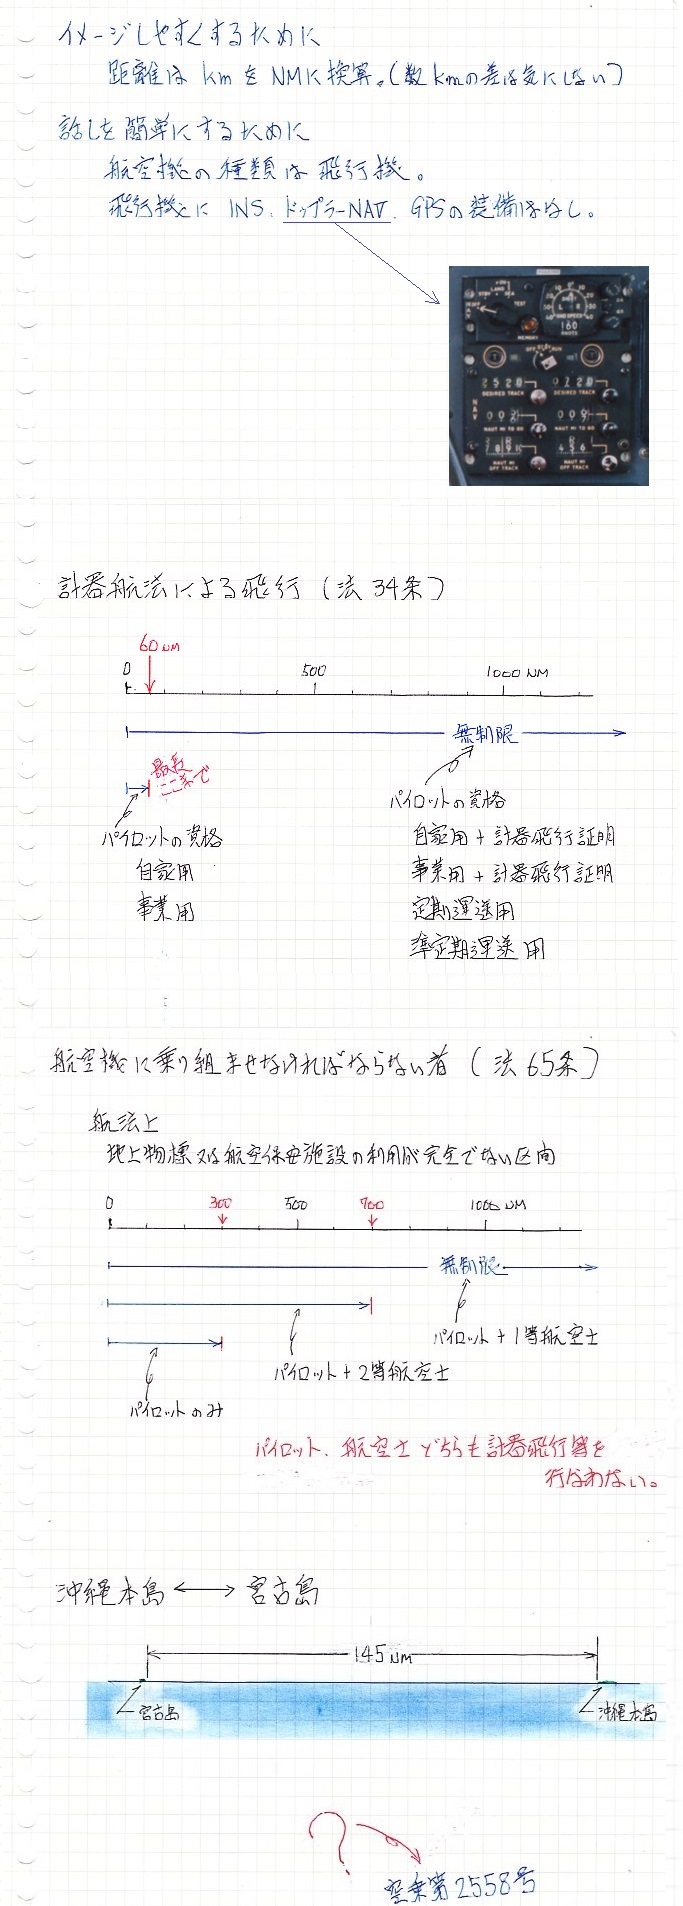 イメージしやすくするために
距離は km を NMに換算。(数kmの差は気にしない)
話しを簡単にするために
航空機の種類は飛行機。
飛行機に INS、ドップラーNAV、GPSの装備はなし。
MEMORY
160
OFF
2520
0720
DESIRED TRACK
DESIRED TRACK
NAV
NAUT MI TO GO
NAUT MI TO GO
NAUT MI OFF TRACK
NAUT MI OFF TRACK
計器航法による飛行 (法34条)
60NM
0 500 1000 NM
無制限
最長ここまで
パイロットの資格
自家用
事業用
パイロットの資格
自家用+計器飛行証明
事業用+計器飛行証明
定期運送用
準定期運送用
航空機に乗り組ませなければならない者 (法65条)
航法上
地上物標又は航空保安施設の利用が完全でない区間
0 300 500 700 1000 NM
無制限
パイロット+1等航空士
パイロット+2等航空士
パイロットのみ
パイロット、航空士どちらも計器飛行等を
行なわない。
沖縄本島 ←→ 宮古島
145NM
宮古島
沖縄本島
?
空乗第2558号